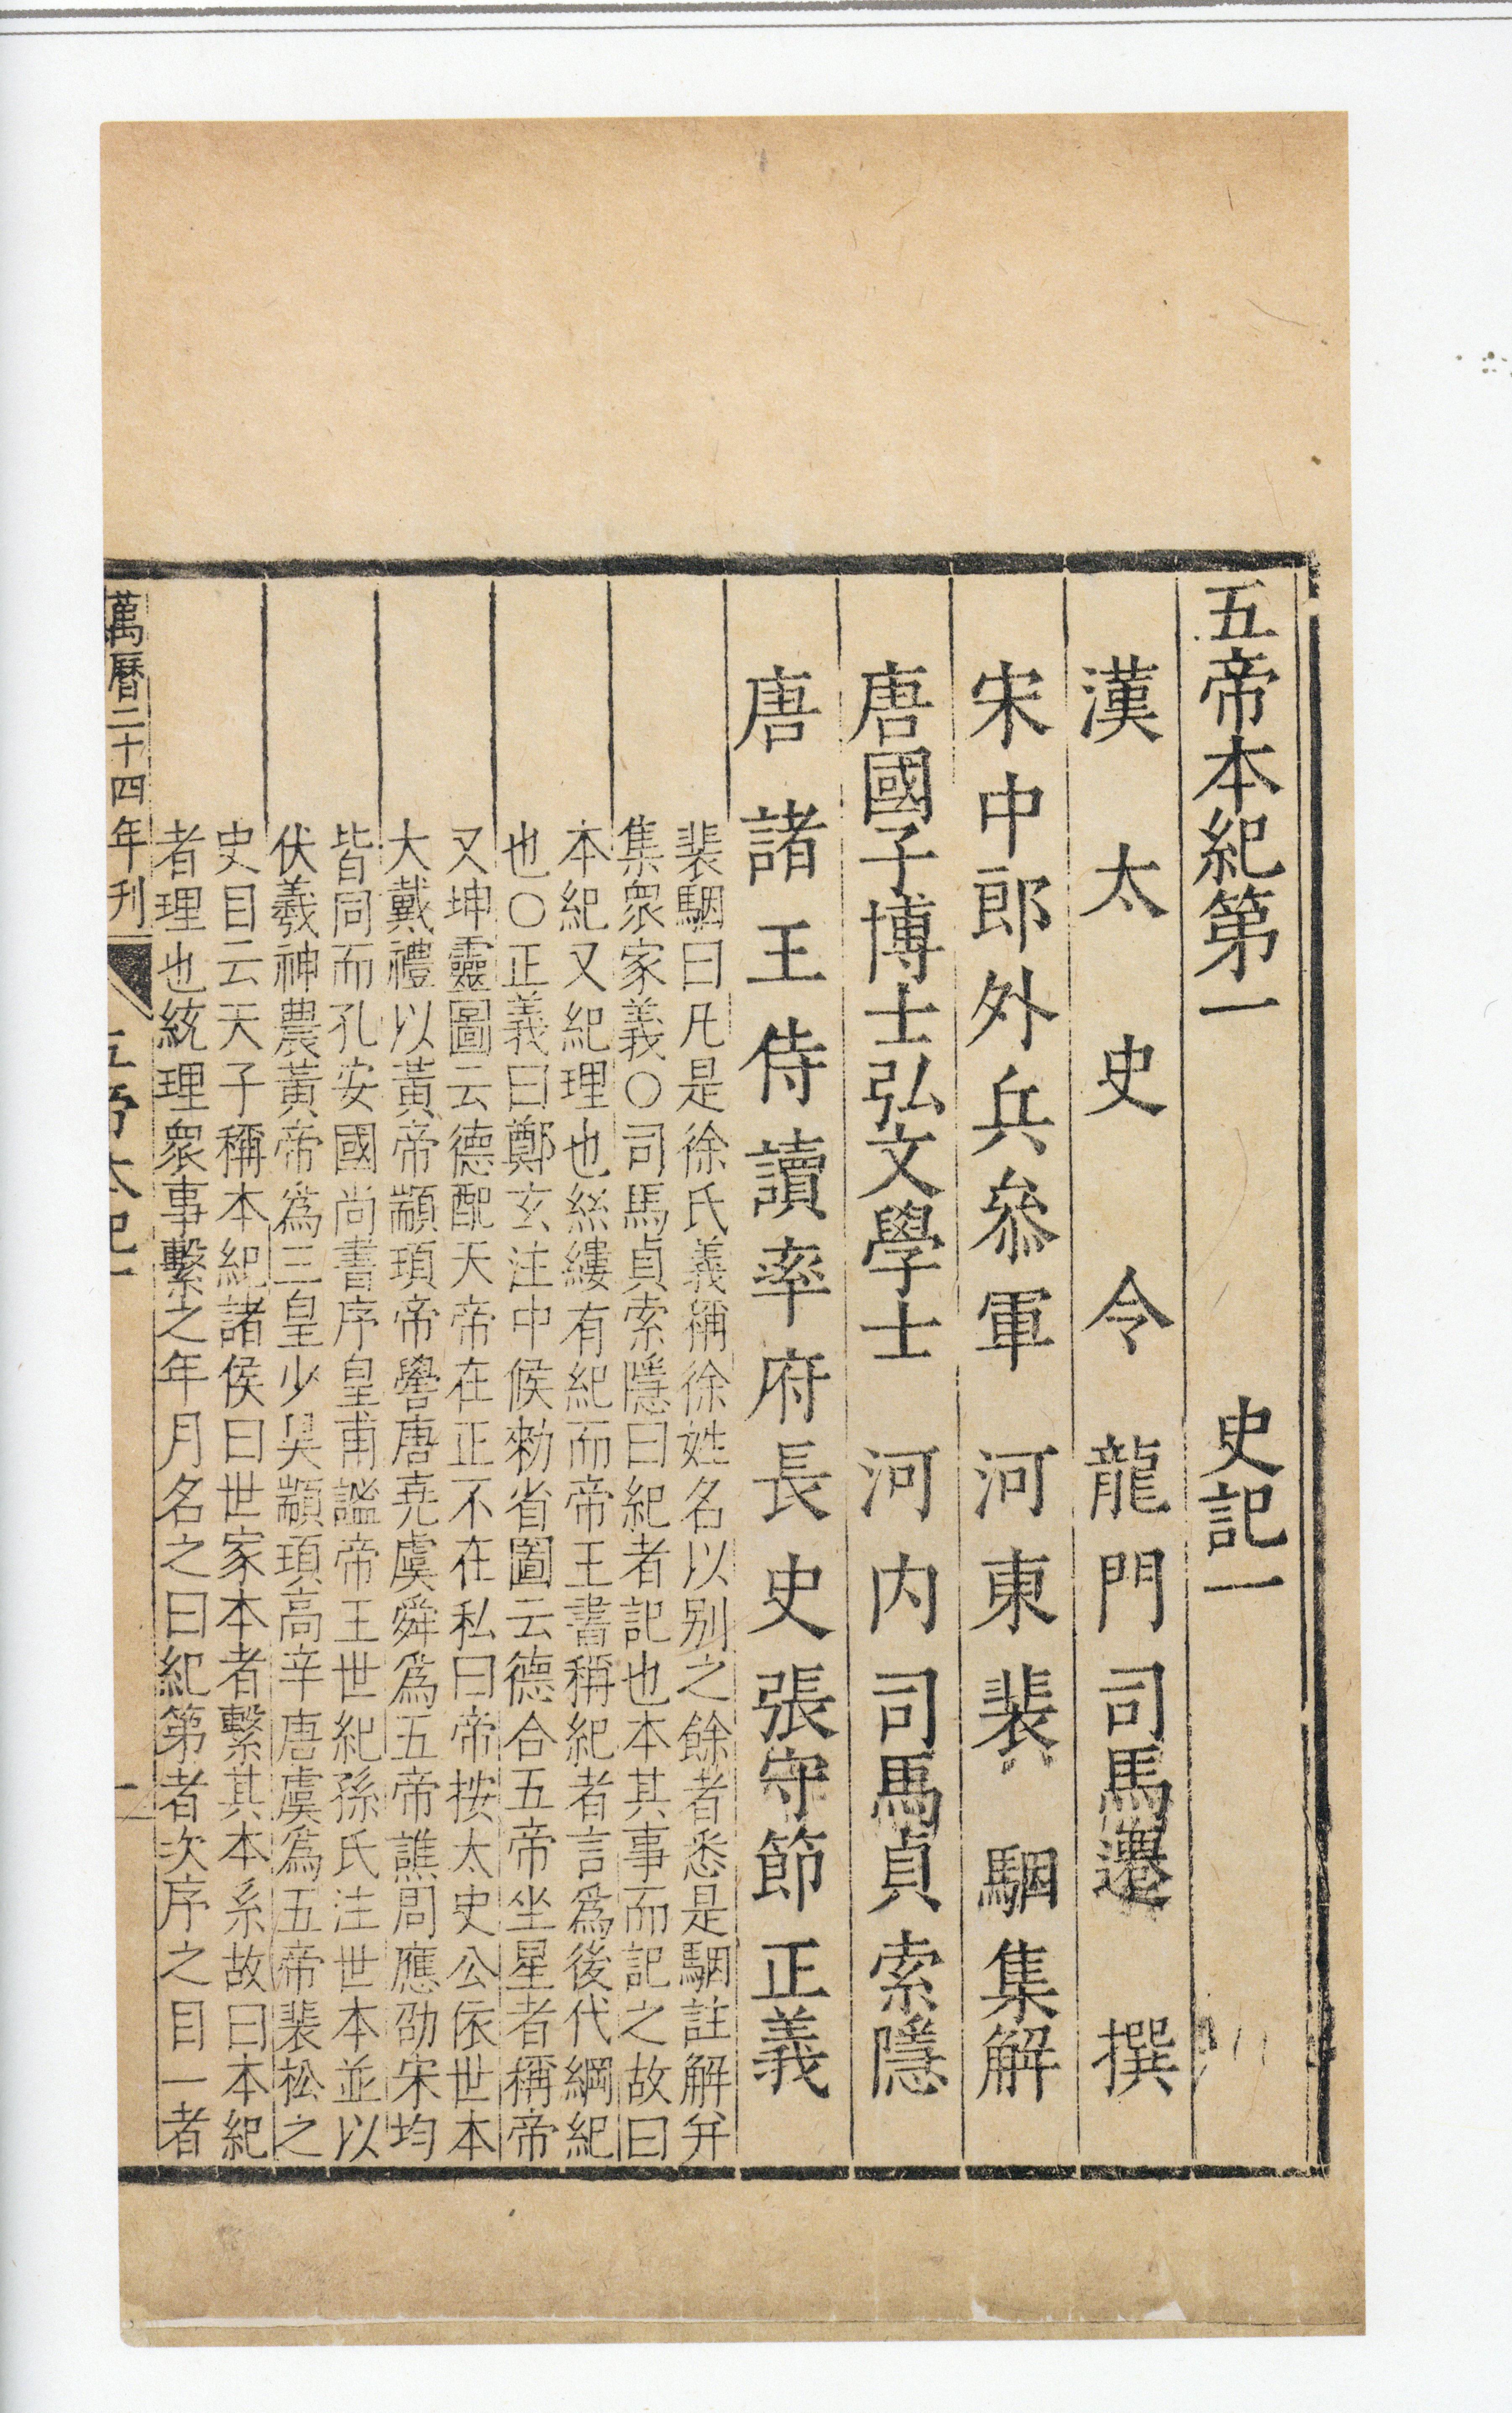 五帝本紀第一 史記一
漢太史令龍門司馬遷撰
宋中郎外兵叅軍河東裴駰集解
唐國子博士弘文學士河内司馬貞索隱
唐諸王侍讀率府長史張守節正義
裴駰曰凡是徐氏義稱徐姓名以别之餘者悉是駰註解并
集衆家義○司馬貞索隱曰紀者記也本其事而記之故曰
本紀又紀理也絲縷有紀而帝王書稱紀者言爲後代綱紀
也○正義曰鄭玄注中候勑省圖云德合五帝坐星者稱帝
又坤靈圖云德配天帝在正不在私曰帝按太史公依世本
大戴禮以黃帝顓頊帝嚳唐堯虞舜爲五帝譙周應劭宋均
皆同而孔安國尚書序皇甫謐帝王世紀孫氏注世本並以
伏羲神農黃帝爲三皇少昊顓頊高辛唐虞爲五帝裴松之
史目云天子稱本紀諸侯曰世家本者繫其本系故曰本紀
者理也統理衆事繫之年月名之曰紀第者次序之目一者
萬曆二十四年刊 五帝本紀一 一